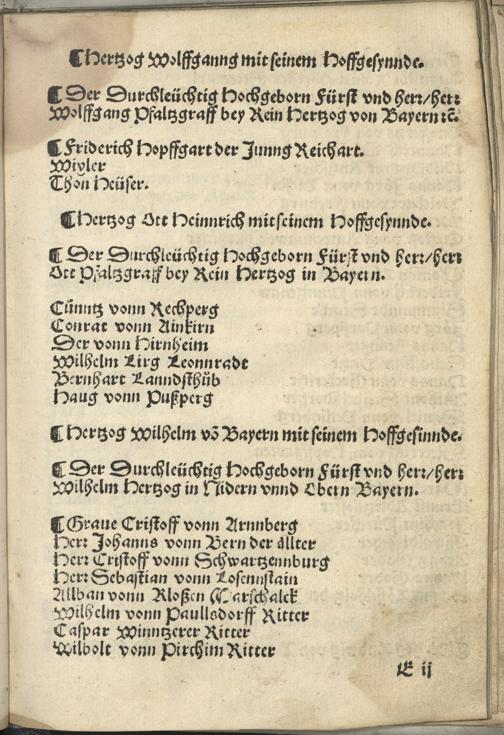 ¶ Hertzog Wolffganng mit seinem Hoffgesynnde.
¶ Der Durchleüchtig Hochgeborn Fürst vnd herr/herr
Wolffgang Pfaltzgraff bey Rein Hertzog von Bayern ꝛc̄.
¶ Friderich Hopffgart der Junng Reichart.
Wiyler
Thon Heüser.
¶ Hertzog Ott Heinnrich mit seinem Hoffgesynnde.
¶ Der Durchleüchtig Hochgeborn Fürst vnd herr/herr
Ott Pfaltzgraff bey Rein Hertzog in Bayern.
Cünntz vonn Rechperg
Conrat vonn Ainkirn
Der vonn Hirnheim
Wilhelm Lirg Leonnradt
Bernhart Lanndsthüb
Haug vonn Pußperg
¶ Hertzog Wilhelm vō Bayern mit seinem Hoffgesinnde.
¶ Der Durchleüchtig Hochgeborn Fürst vnd herr/herr
Wilhelm Hertzog in Nidern vnnd Obern Bayern.
¶ Graue Cristoff vonn Arnnberg
Herr Johanns vonn Bern der ällter
Herr Cristoff vonn Schwartzennburg
Herr Sebastian vonn Losennstain
Allban vonn Kloßen Marschalck
Wilhelm vonn Paullsdorff Ritter
Caspar Winntzerer Ritter
Wilbolt vonn Pirchim Ritter
E ij